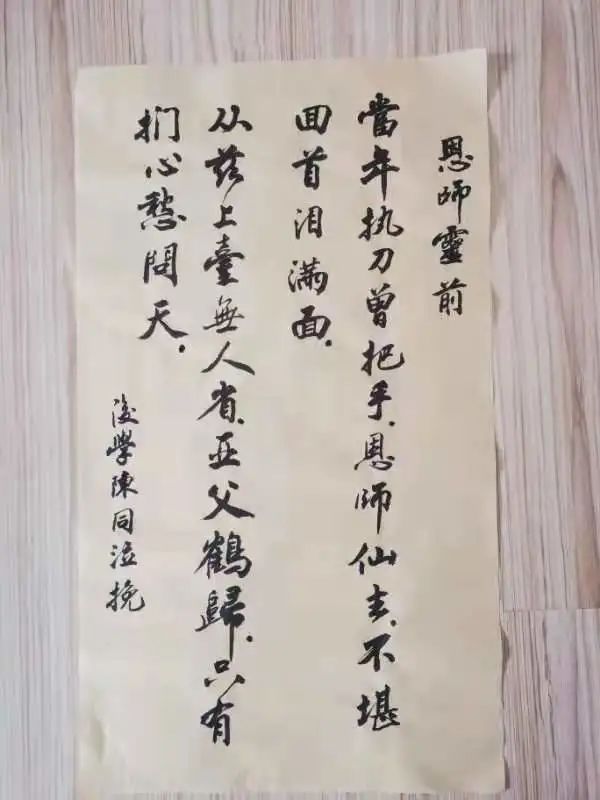 恩師靈前
當年执刀曾把手.恩師仙去.不堪
回首泪满面.
从兹上臺無人省.亚父鶴歸.只有
扪心愁問天.
後學陳同泣挽